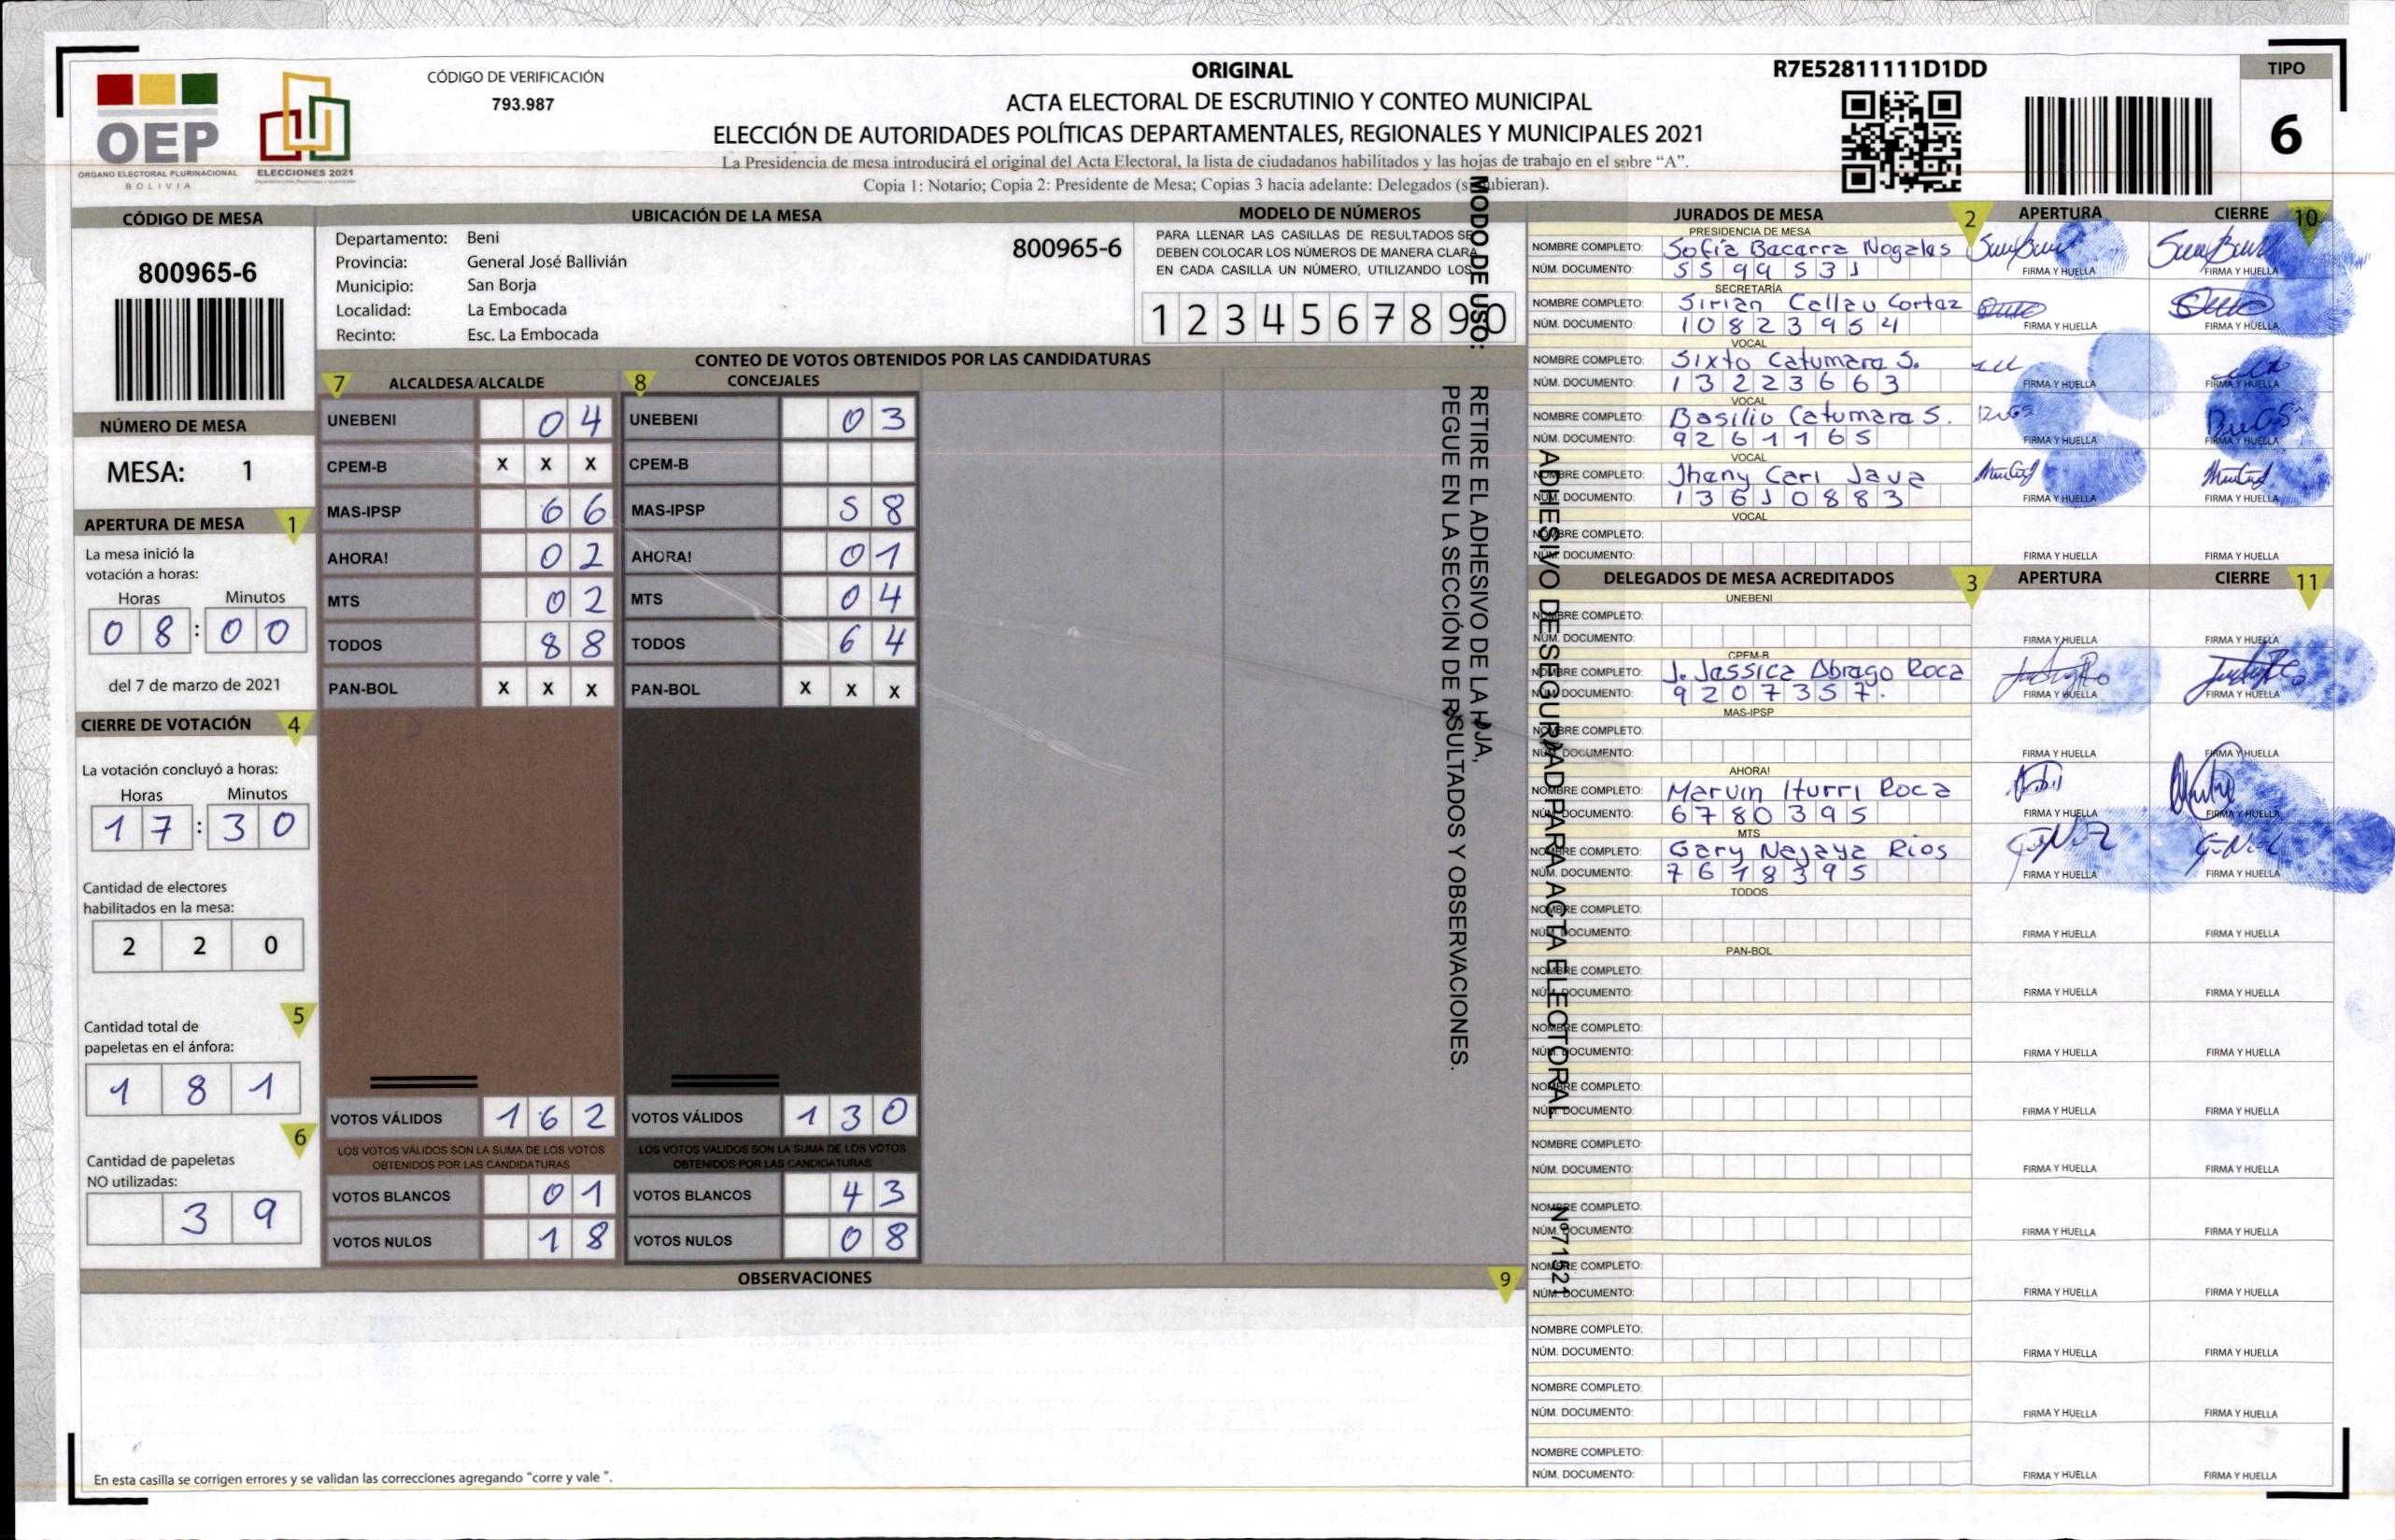 OEP
ÓRGANO ELECTORAL PLURINACIONAL
BOLIVIA
ELECCIONES 2021
CÓDIGO DE VERIFICACIÓN
793.987
ORIGINAL
ACTA ELECTORAL DE ESCRUTINIO Y CONTEO MUNICIPAL
ELECCIÓN DE AUTORIDADES POLÍTICAS DEPARTAMENTALES, REGIONALES Y MUNICIPALES 2021
La Presidencia de mesa introducirá el original del Acta Electoral, la lista de ciudadanos habilitados y las hojas de trabajo en el sobre “A”.
Copia 1: Notario; Copia 2: Presidente de Mesa; Copias 3 hacia adelante: Delegados
R7E52811111D1DD
TIPO
6
CÓDIGO DE MESA
800965-6
NÚMERO DE MESA
MESA: 1
APERTURA DE MESA 1
La mesa inició la
votación a horas:
Horas Minutos
08:00
del 7 de marzo de 2021
CIERRE DE VOTACIÓN 4
La votación concluyó a horas:
Horas Minutos
17:30
Cantidad de electores
habilitados en la mesa:
220
5
Cantidad total de
papeletas en el ánfora:
181
6
Cantidad de papeletas
NO utilizadas:
39
UBICACIÓN DE LA MESA
Departamento: Beni
Provincia: General José Ballivián
Municipio: San Borja
Localidad: La Embocada
Recinto: Esc. La Embocada
800965-6
MODELO DE NÚMEROS
PARA LLENAR LAS CASILLAS DE RESULTADOS SE
DEBEN COLOCAR LOS NÚMEROS DE MANERA CLARA
EN CADA CASILLA UN NÚMERO, UTILIZANDO LOS
1 2 3 4 5 6 7 8 9 0
CONTEO DE VOTOS OBTENIDOS POR LAS CANDIDATURAS
7 ALCALDESA/ALCALDE
UNEBENI 04
CPEM-B X X X
MAS-IPSP 66
AHORA! 02
MTS 02
TODOS 88
PAN-BOL X X X
VOTOS VÁLIDOS 162
LOS VOTOS VÁLIDOS SON LA SUMA DE LOS VOTOS
OBTENIDOS POR LAS CANDIDATURAS
VOTOS BLANCOS 01
VOTOS NULOS 18
8 CONCEJALES
UNEBENI 03
CPEM-B
MAS-IPSP 58
AHORA! 01
MTS 04
TODOS 64
PAN-BOL X X X
VOTOS VÁLIDOS 130
LOS VOTOS VÁLIDOS SON LA SUMA DE LOS VOTOS
OBTENIDOS POR LAS CANDIDATURAS
VOTOS BLANCOS 43
VOTOS NULOS 08
MODO DE USO:
RETIRE EL ADHESIVO DE LA HOJA,
PEGUE EN LA SECCIÓN DE RESULTADOS Y OBSERVACIONES.
ADHESIVO DE SEGURIDAD PARA ACTA ELECTORAL
Nº 71521
OBSERVACIONES 9
En esta casilla se corrigen errores y se validan las correcciones agregando “corre y vale ”.
JURADOS DE MESA 2 APERTURA CIERRE 10
PRESIDENCIA DE MESA
NOMBRE COMPLETO: Sofia Bacarra Nogales
NÚM. DOCUMENTO: 5599531
FIRMA Y HUELLA FIRMA Y HUELLA
SECRETARÍA
NOMBRE COMPLETO: Sirian Callau Cortaz
NÚM. DOCUMENTO: 10823954
FIRMA Y HUELLA FIRMA Y HUELLA
VOCAL
NOMBRE COMPLETO: Sixto Catumara S.
NÚM. DOCUMENTO: 13223663
FIRMA Y HUELLA FIRMA Y HUELLA
VOCAL
NOMBRE COMPLETO: Basilio Catumara S.
NÚM. DOCUMENTO: 9261165
FIRMA Y HUELLA FIRMA Y HUELLA
VOCAL
NOMBRE COMPLETO: Jhany Cari Java
NÚM. DOCUMENTO: 13610883
FIRMA Y HUELLA FIRMA Y HUELLA
VOCAL
NOMBRE COMPLETO:
NÚM. DOCUMENTO:
FIRMA Y HUELLA FIRMA Y HUELLA
DELEGADOS DE MESA ACREDITADOS 3 APERTURA CIERRE 11
UNEBENI
NOMBRE COMPLETO:
NÚM. DOCUMENTO:
FIRMA Y HUELLA FIRMA Y HUELLA
CPEM-B
NOMBRE COMPLETO: J. Jassica Obrago Roca
NÚM. DOCUMENTO: 9207357.
FIRMA Y HUELLA FIRMA Y HUELLA
MAS-IPSP
NOMBRE COMPLETO:
NÚM. DOCUMENTO:
FIRMA Y HUELLA FIRMA Y HUELLA
AHORA!
NOMBRE COMPLETO: Marvin Iturri Roca
NÚM. DOCUMENTO: 6780395
FIRMA Y HUELLA FIRMA Y HUELLA
MTS
NOMBRE COMPLETO: Gary Najaya Rios
NÚM. DOCUMENTO: 7618395
FIRMA Y HUELLA FIRMA Y HUELLA
TODOS
NOMBRE COMPLETO:
NÚM. DOCUMENTO:
FIRMA Y HUELLA FIRMA Y HUELLA
PAN-BOL
NOMBRE COMPLETO:
NÚM. DOCUMENTO:
FIRMA Y HUELLA FIRMA Y HUELLA
NOMBRE COMPLETO:
NÚM. DOCUMENTO:
FIRMA Y HUELLA FIRMA Y HUELLA
NOMBRE COMPLETO:
NÚM. DOCUMENTO:
FIRMA Y HUELLA FIRMA Y HUELLA
NOMBRE COMPLETO:
NÚM. DOCUMENTO:
FIRMA Y HUELLA FIRMA Y HUELLA
NOMBRE COMPLETO:
NÚM. DOCUMENTO:
FIRMA Y HUELLA FIRMA Y HUELLA
NOMBRE COMPLETO:
NÚM. DOCUMENTO:
FIRMA Y HUELLA FIRMA Y HUELLA
NOMBRE COMPLETO:
NÚM. DOCUMENTO:
FIRMA Y HUELLA FIRMA Y HUELLA
NOMBRE COMPLETO:
NÚM. DOCUMENTO:
FIRMA Y HUELLA FIRMA Y HUELLA
NOMBRE COMPLETO:
NÚM. DOCUMENTO:
FIRMA Y HUELLA FIRMA Y HUELLA